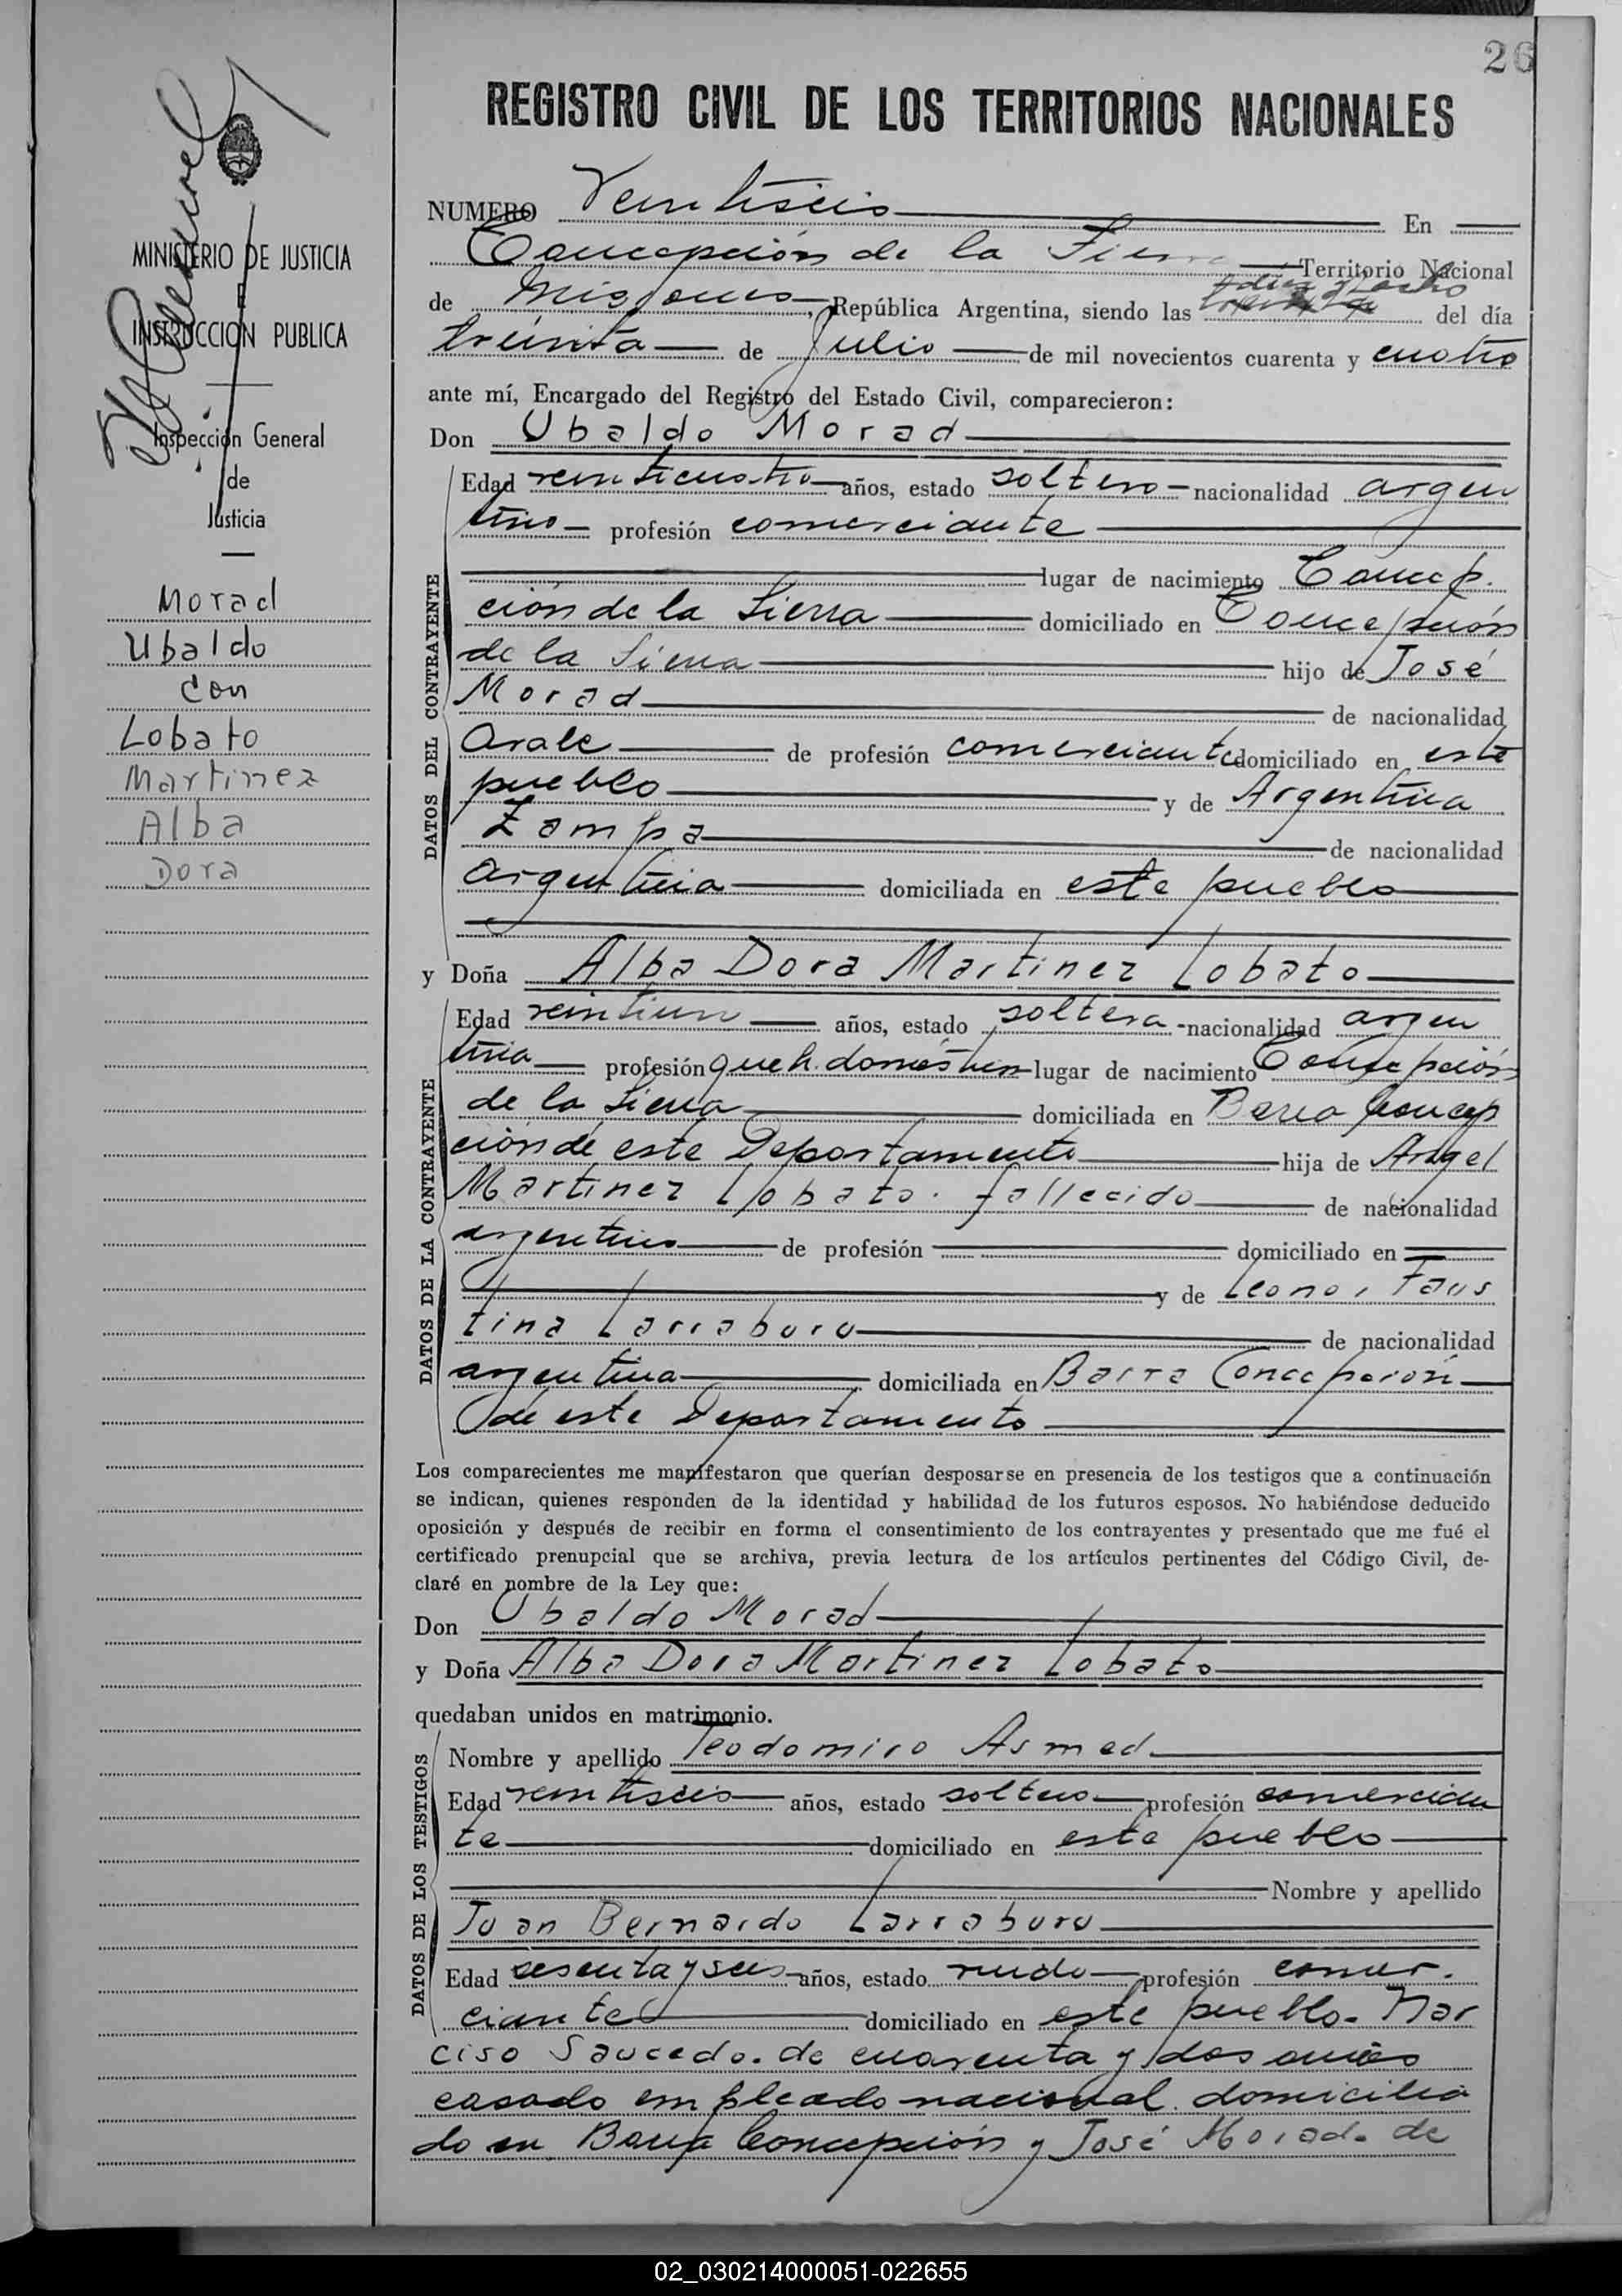 26
REGISTRO CIVIL DE LOS TERRITORIOS NACIONALES
MINISTERIO DE JUSTICIA
E
INSTRUCCION PUBLICA
Inspección General
de
Justicia
Morad
Ubaldo
con
Lobato
Martinez
Alba
Dora
NUMERO Veintiseis En
Concepción de la Sierra Territorio Nacional
de Misiones, República Argentina, siendo las diez y ocho del día
treinta de Julio de mil novecientos cuarenta y cuatro
ante mí, Encargado del Registro del Estado Civil, comparecieron:
Don Ubaldo Morad
DATOS DEL CONTRAYENTE
Edad veinticuatro años, estado soltero nacionalidad argen
tino profesión comerciante
lugar de nacimiento Concep.
ción de la Sierra domiciliado en Concepción
de la Sierra hijo de José
Morad de nacionalidad
Arabe de profesión comerciante domiciliado en este
pueblo y de Argentina
Zampa de nacionalidad
argentina domiciliada en este pueblo
y Doña Alba Dora Martinez Lobato
DATOS DE LA CONTRAYENTE
Edad veintiun años, estado soltera nacionalidad argen
tina profesión queh. domésticos lugar de nacimiento Concepción
de la Sierra domiciliada en Barra Concep
ción de este Departamento hija de Angel
Martinez Lobato. fallecido de nacionalidad
argentino de profesión domiciliado en
y de Leonor Faus
tina Larraburu de nacionalidad
argentina domiciliada en Barra Concepción
de este Departamento
Los comparecientes me manifestaron que querían desposarse en presencia de los testigos que a continuación
se indican, quienes responden de la identidad y habilidad de los futuros esposos. No habiéndose deducido
oposición y después de recibir en forma el consentimiento de los contrayentes y presentado que me fué el
certificado prenupcial que se archiva, previa lectura de los artículos pertinentes del Código Civil, de-
claré en nombre de la Ley que:
Don Ubaldo Morad
y Doña Alba Dora Martinez Lobato
quedaban unidos en matrimonio.
DATOS DE LOS TESTIGOS
Nombre y apellido Teodomiro Asmed
Edad veintiseis años, estado soltero profesión comercian
te domiciliado en este pueblo
Nombre y apellido
Juan Bernardo Larraburu
Edad sesenta y seis años, estado viudo profesión comer.
ciante domiciliado en este pueblo. Nar
ciso Saucedo. de cuarenta y dos años
casado empleado nacional. domicilia
do en Barra Concepción y José Morad. de
02_030214000051-022655